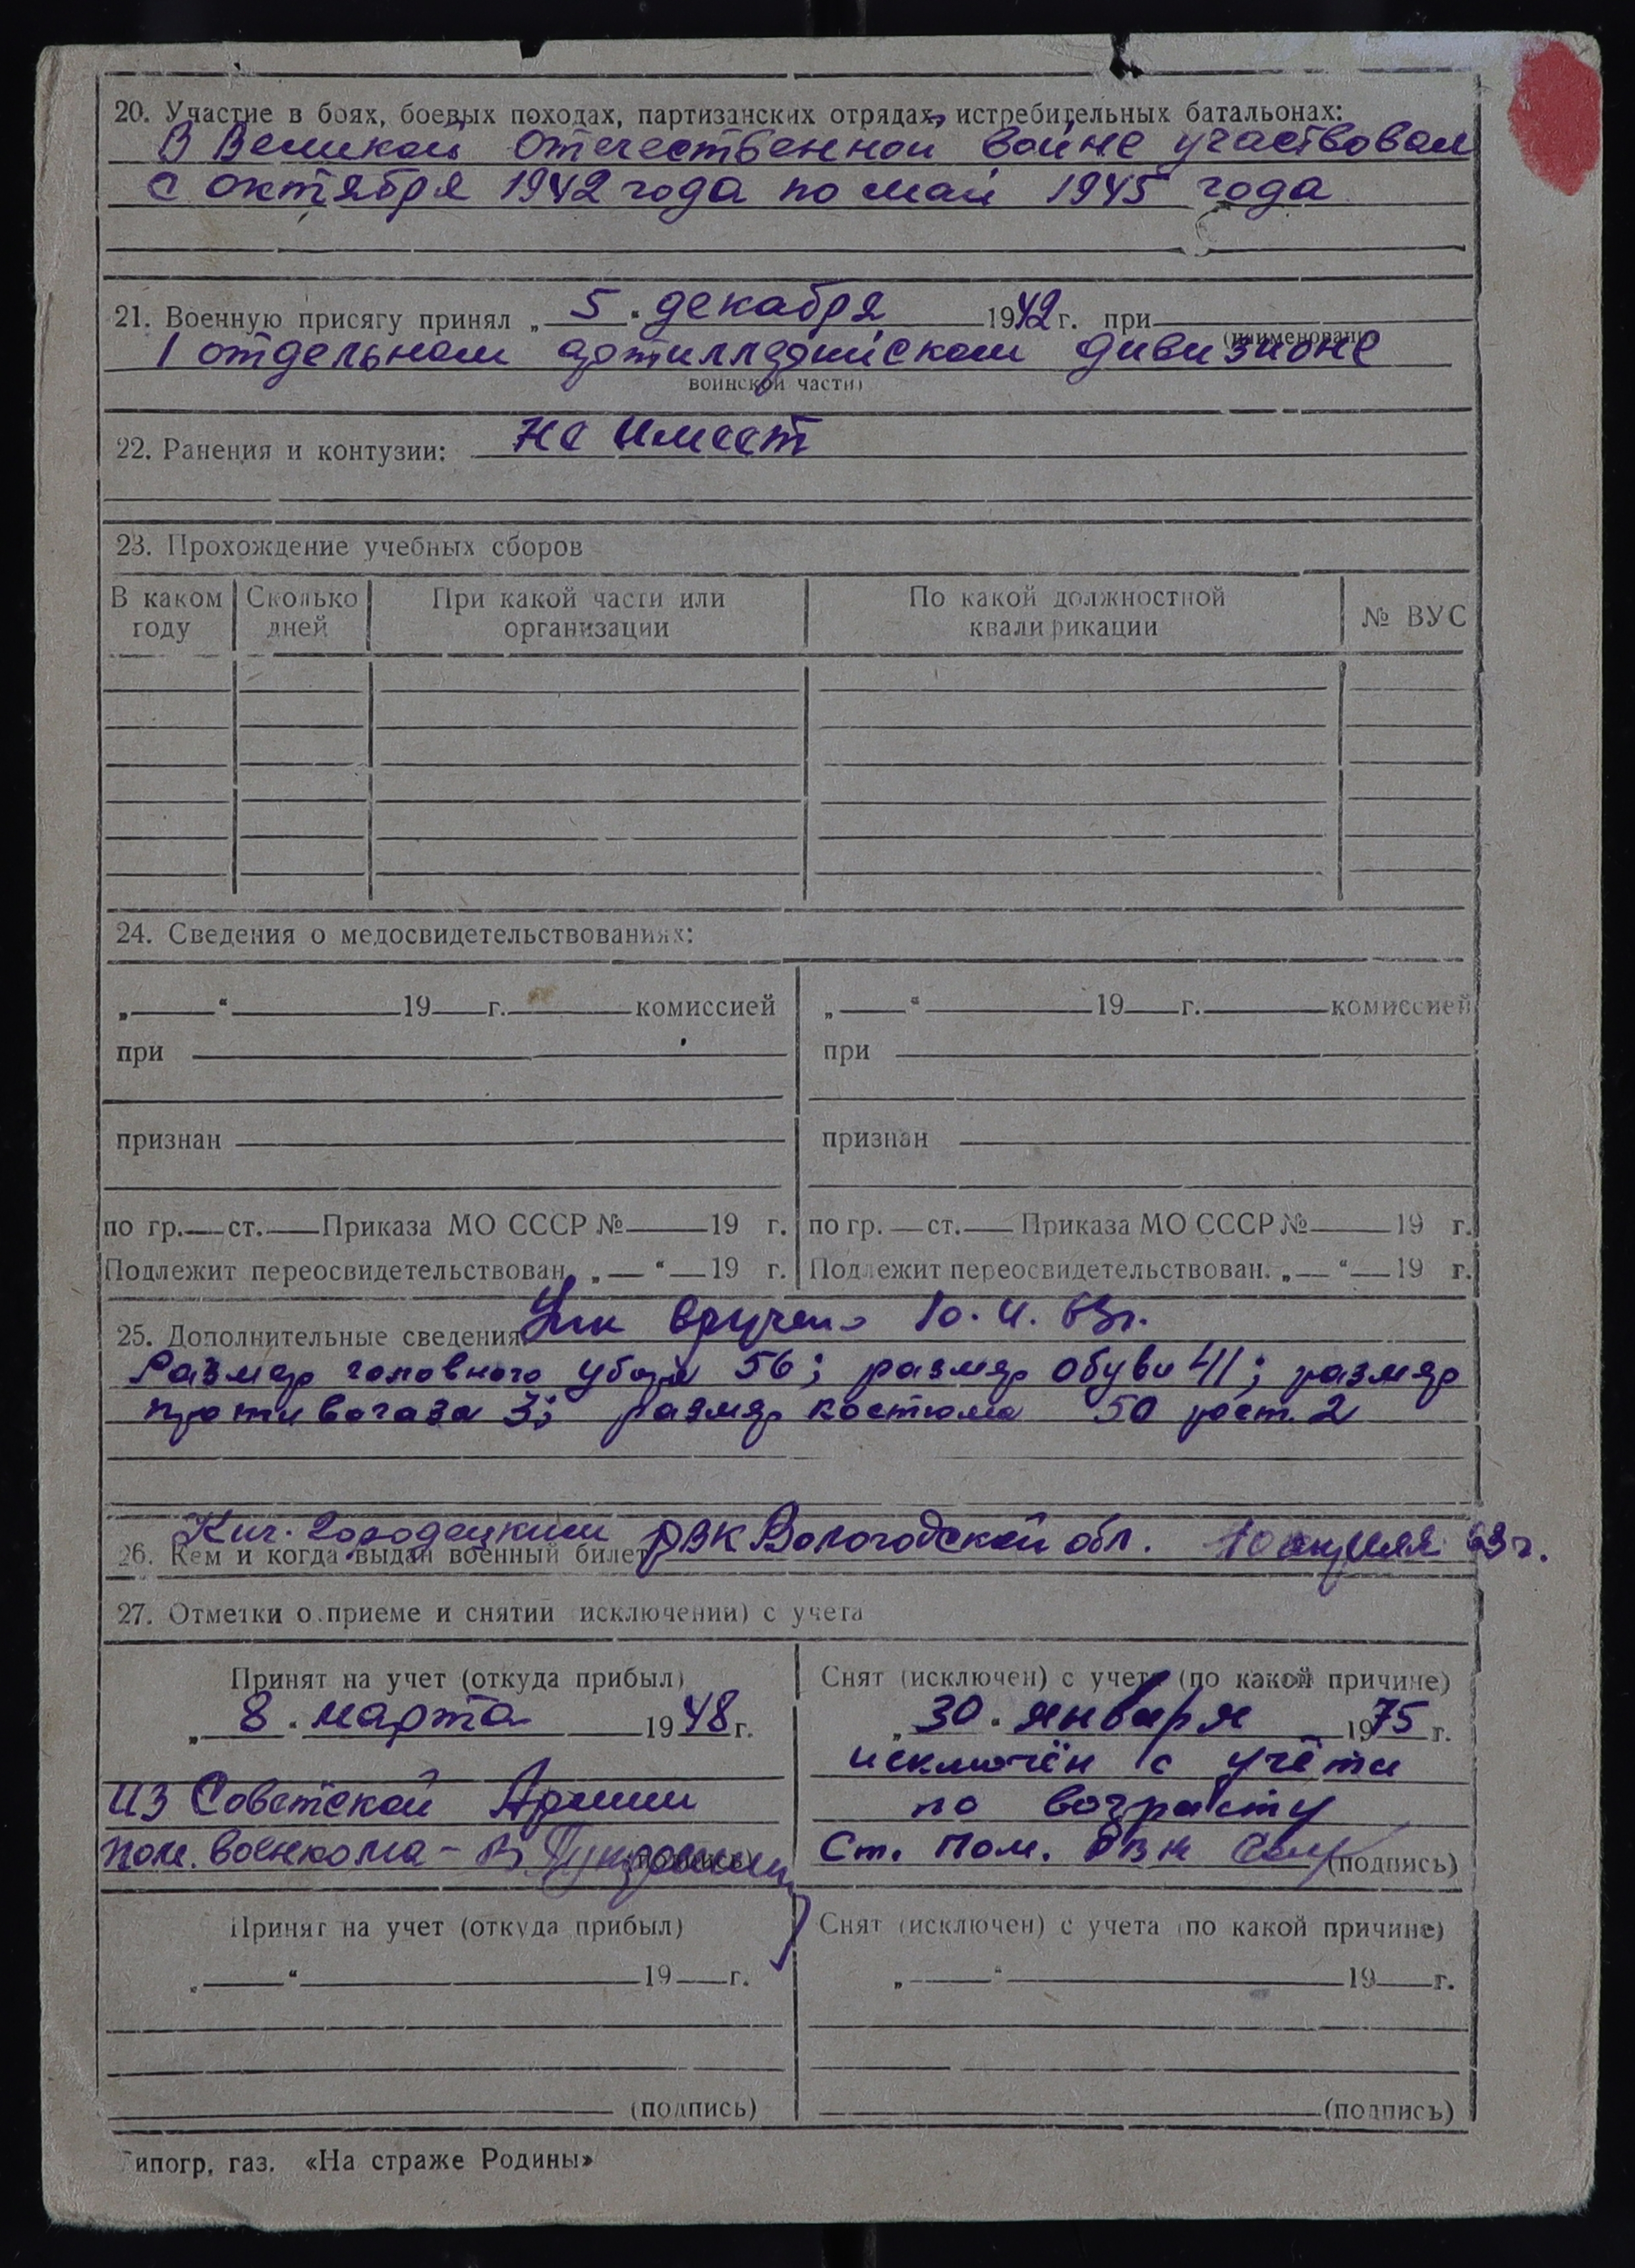 20. Участие в боях, боевых походах, партизанских отрядах, истребительных батальонах:
В Великой Отечественной войне участвовал
с октября 1942 года по май 1945 года
21. Военную присягу принял „ 5 " декабря 1942 г. при
(наименование
1 отдельном артиллерийском дивизионе
воинской части)
22. Ранения и контузии: не имеет
23. Прохождение учебных сборов
В каком году | Сколько дней | При какой части или организации | По какой должностной квалификации | № ВУС
24. Сведения о медосвидетельствованиях:
„ “ 19 г. комиссией | „ “ 19 г. комиссией
при | при
признан | признан
по гр. ст. Приказа МО СССР № 19 г. | по гр. ст. Приказа МО СССР № 19 г.
Подлежит переосвидетельствован. „ “ 19 г. | Подлежит переосвидетельствован. „ “ 19 г.
25. Дополнительные сведения вручено 63г.
Размер головного убора 56; размер обуви 41; размер
противогаза 3; размер костюма 50 рост. 2
Кич. Городецким РВК Вологодской обл. 10 апреля 63 г.
26. Кем и когда выдан военный билет
27. Отметки о приеме и снятии (исключении) с учета
Принят на учет (откуда прибыл)
„ 8 " марта 1948 г.
из Советской Армии
пом. военкома -
(подпись)
Снят (исключен) с учета (по какой причине)
„ 30 " января 1975 г.
исключён с учёта
по возрасту
Ст. пом. РВК (подпись)
Принят на учет (откуда прибыл)
„ “ 19 г.
(подпись)
Снят (исключен) с учета (по какой причине)
„ “ 19 г.
(подпись)
Типогр. газ. «На страже Родины»